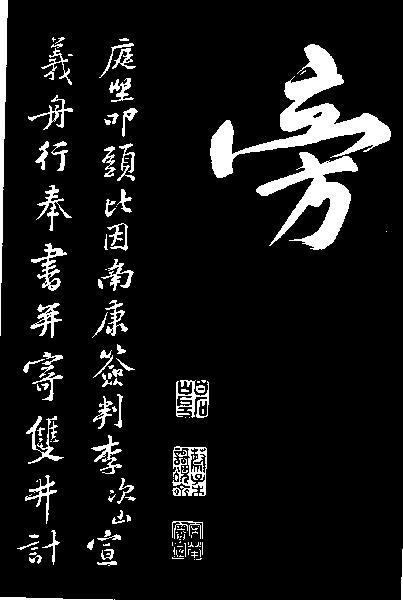 旁
庭堅叩頭比因南康簽判李次山宣
義舟行奉書并寄雙井計